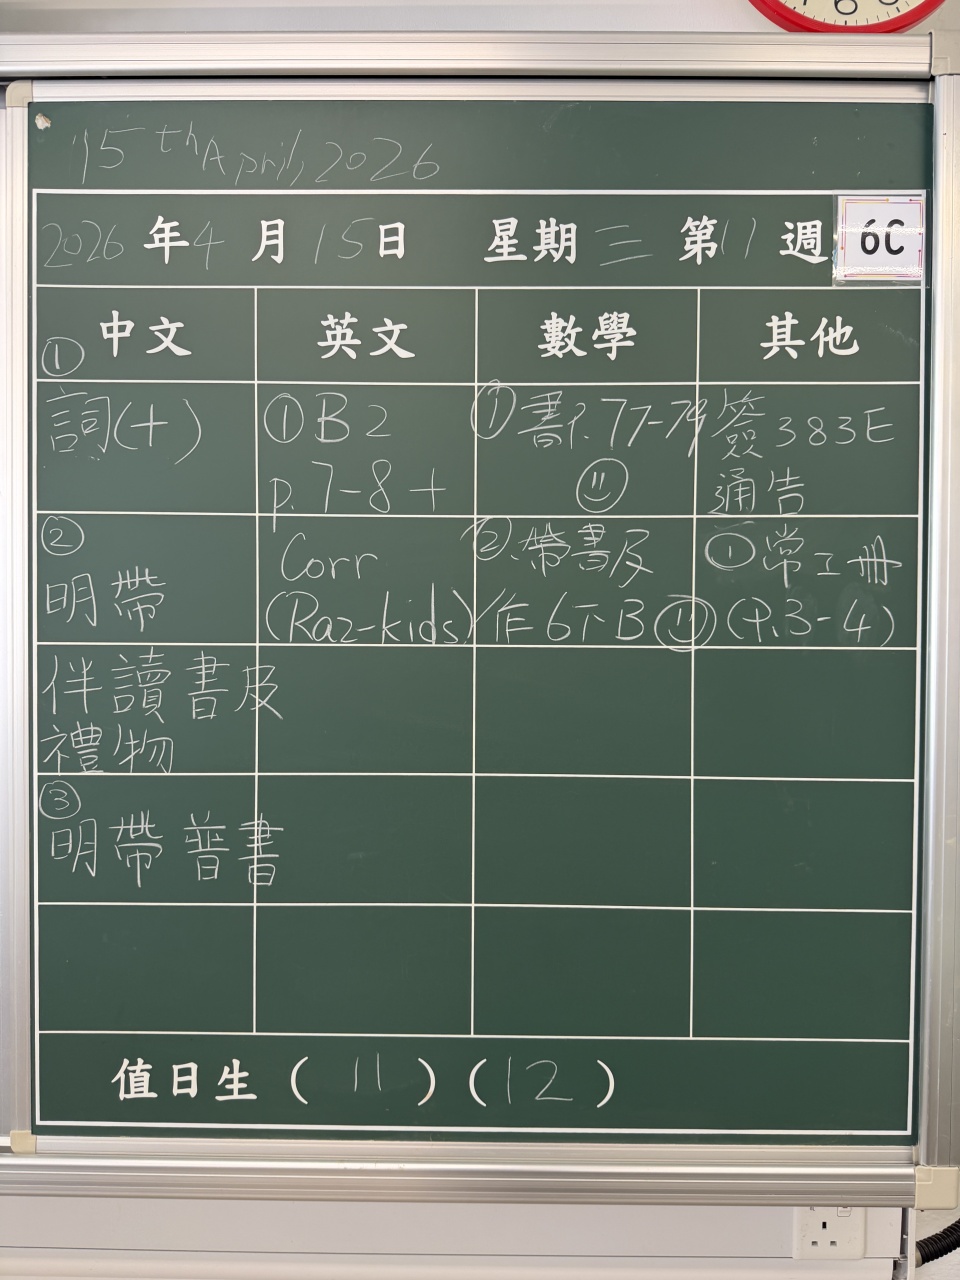 15th April, 2026
2026年4月15日 星期三 第11週 6C
中文 英文 數學 其他
①
詞(十)
②
明帶
伴讀書及
禮物
③
明帶普書
①B2
p.7-8+
Corr
(Raz-kids)
①書P.77-79
②帶書及
作6下B
簽383E
通告
①常工冊
(P.3-4)
值日生(11)(12)